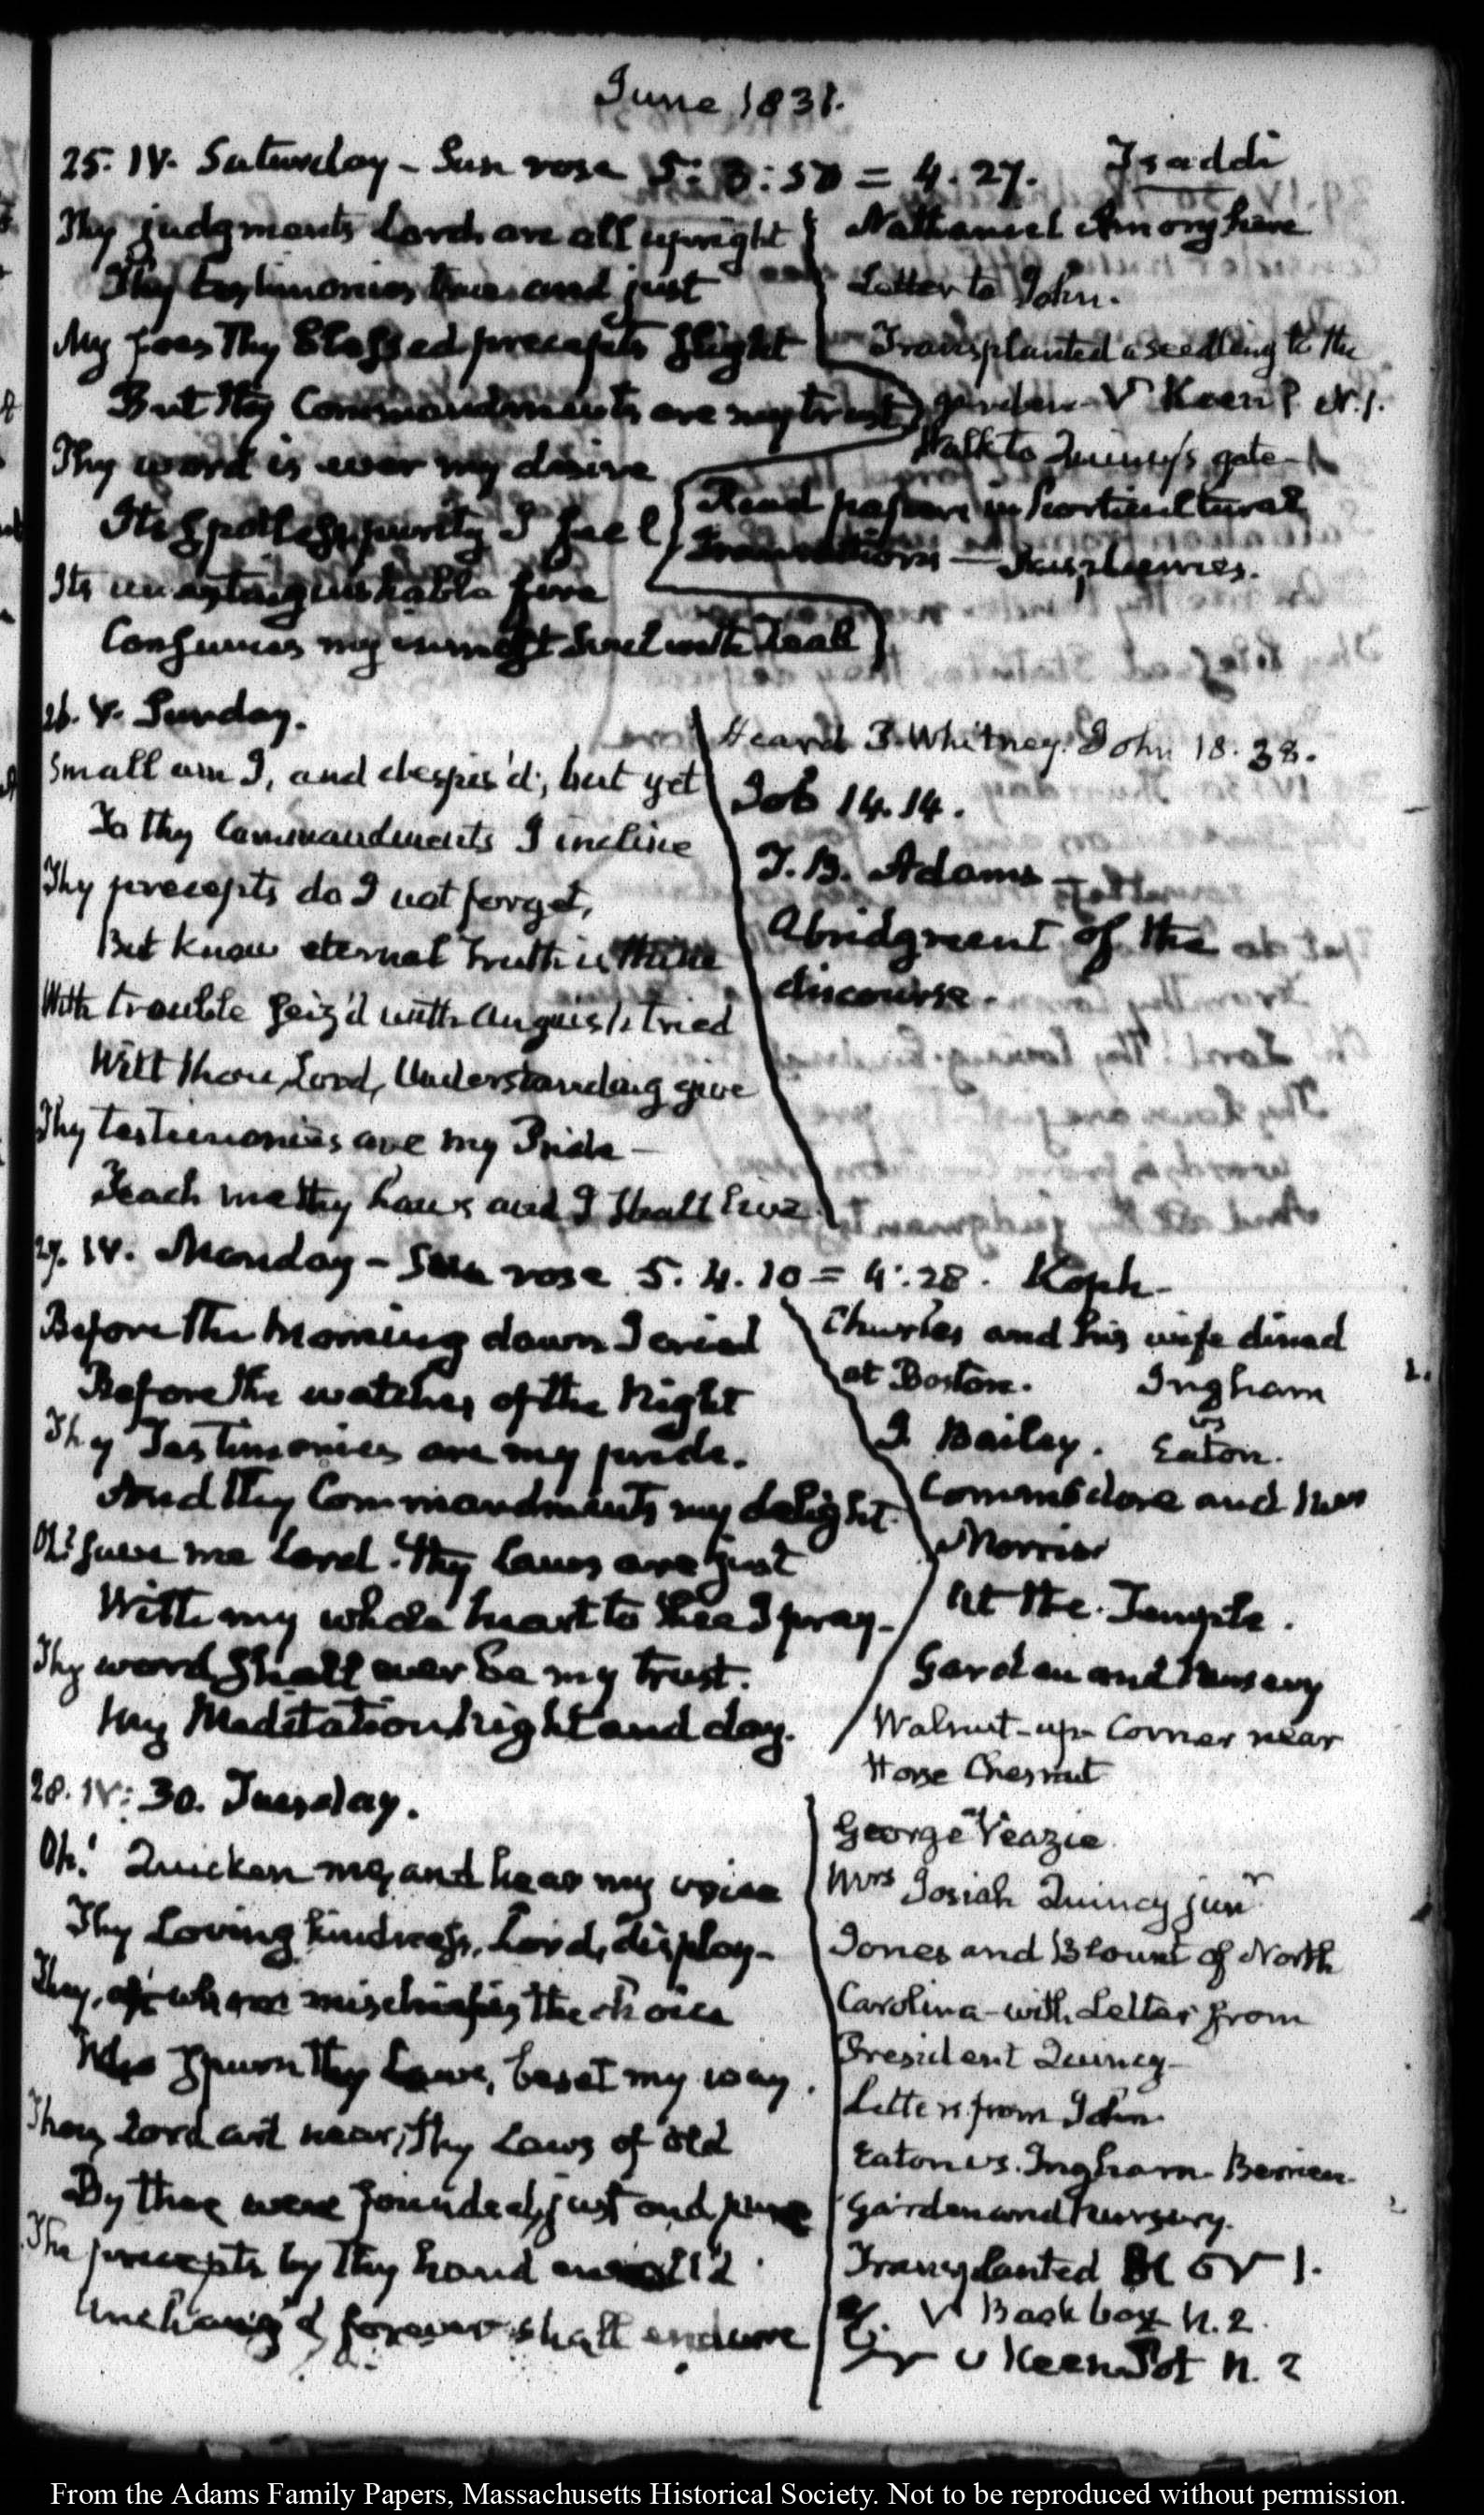 June 1831.
25. IV. Saturday - Sun rose 5: 3:50 = 4.27. Tsaddi
Thy judgments Lord are all upright
Thy testimonies true and just
My foes Thy Blessed precepts slight
But thy Commandments are my trust
Thy word is ever my desire
Its spotless purity I feel
Its unextinguishable fire
Consumes my inmost Soul with Zeal
Nathaniel Amory here
Letter to John.
Transplanted a seedling to the
garden V Keen P. N.1.
Walk to Quincy's gate
Read papers in horticultural
Transactions — Raspberries.
26. V. Sunday.
Small am I, and despis'd; but yet
To thy Commandments I incline
Thy precepts do I not forget,
But know eternal truth is thine
With trouble seiz'd with anguish tried
Wilt thou, Lord, Understanding give
Thy testimonies are my Pride —
Teach me thy Laws and I shall live
Heard P. Whitney. John 18. 38.
Job 14.14.
T. B. Adams —
Abridgment of the
discourse.
27. IV. Monday - Sun rose 5. 4. 10 = 4:28. Koph
Before the Morning dawn I cried
Before the watches of the Night
Thy Testimonies are my pride.
And thy Commandments my delight.
Oh! save me Lord. Thy Laws are just
With my whole heart to thee I pray.
Thy word shall ever be my trust.
My Meditation night and day.
Charles and his wife dined
at Boston. Ingham
vs
J. Bailey. Eaton.
Commodore and Mrs
Morris
At the Temple.
Garden and Nursery
Walnut-up Corner near
Horse Chesnut
28. IV: 30. Tuesday.
Oh! Quicken me, and hear my voice
Thy Loving kindness, Lord, display
They, of whom mischief is the choice
Who spurn thy Laws, beset my way.
Thou, Lord art near, Thy Laws of old
By thee were founded, just and pure
The precepts by Thy hand
Unchang'd forever shall endure
George Veazie
Mrs Josiah Quincy junr
Jones and Blount of North
Carolina - with Letter from
President Quincy
Letters from John.
Eaton vs. Ingham Berrien
Garden and Nursery.
Transplanted 1.
V Back box N. 2.
V Keen Pot N. 2
From the Adams Family Papers, Massachusetts Historical Society. Not to be reproduced without permission.